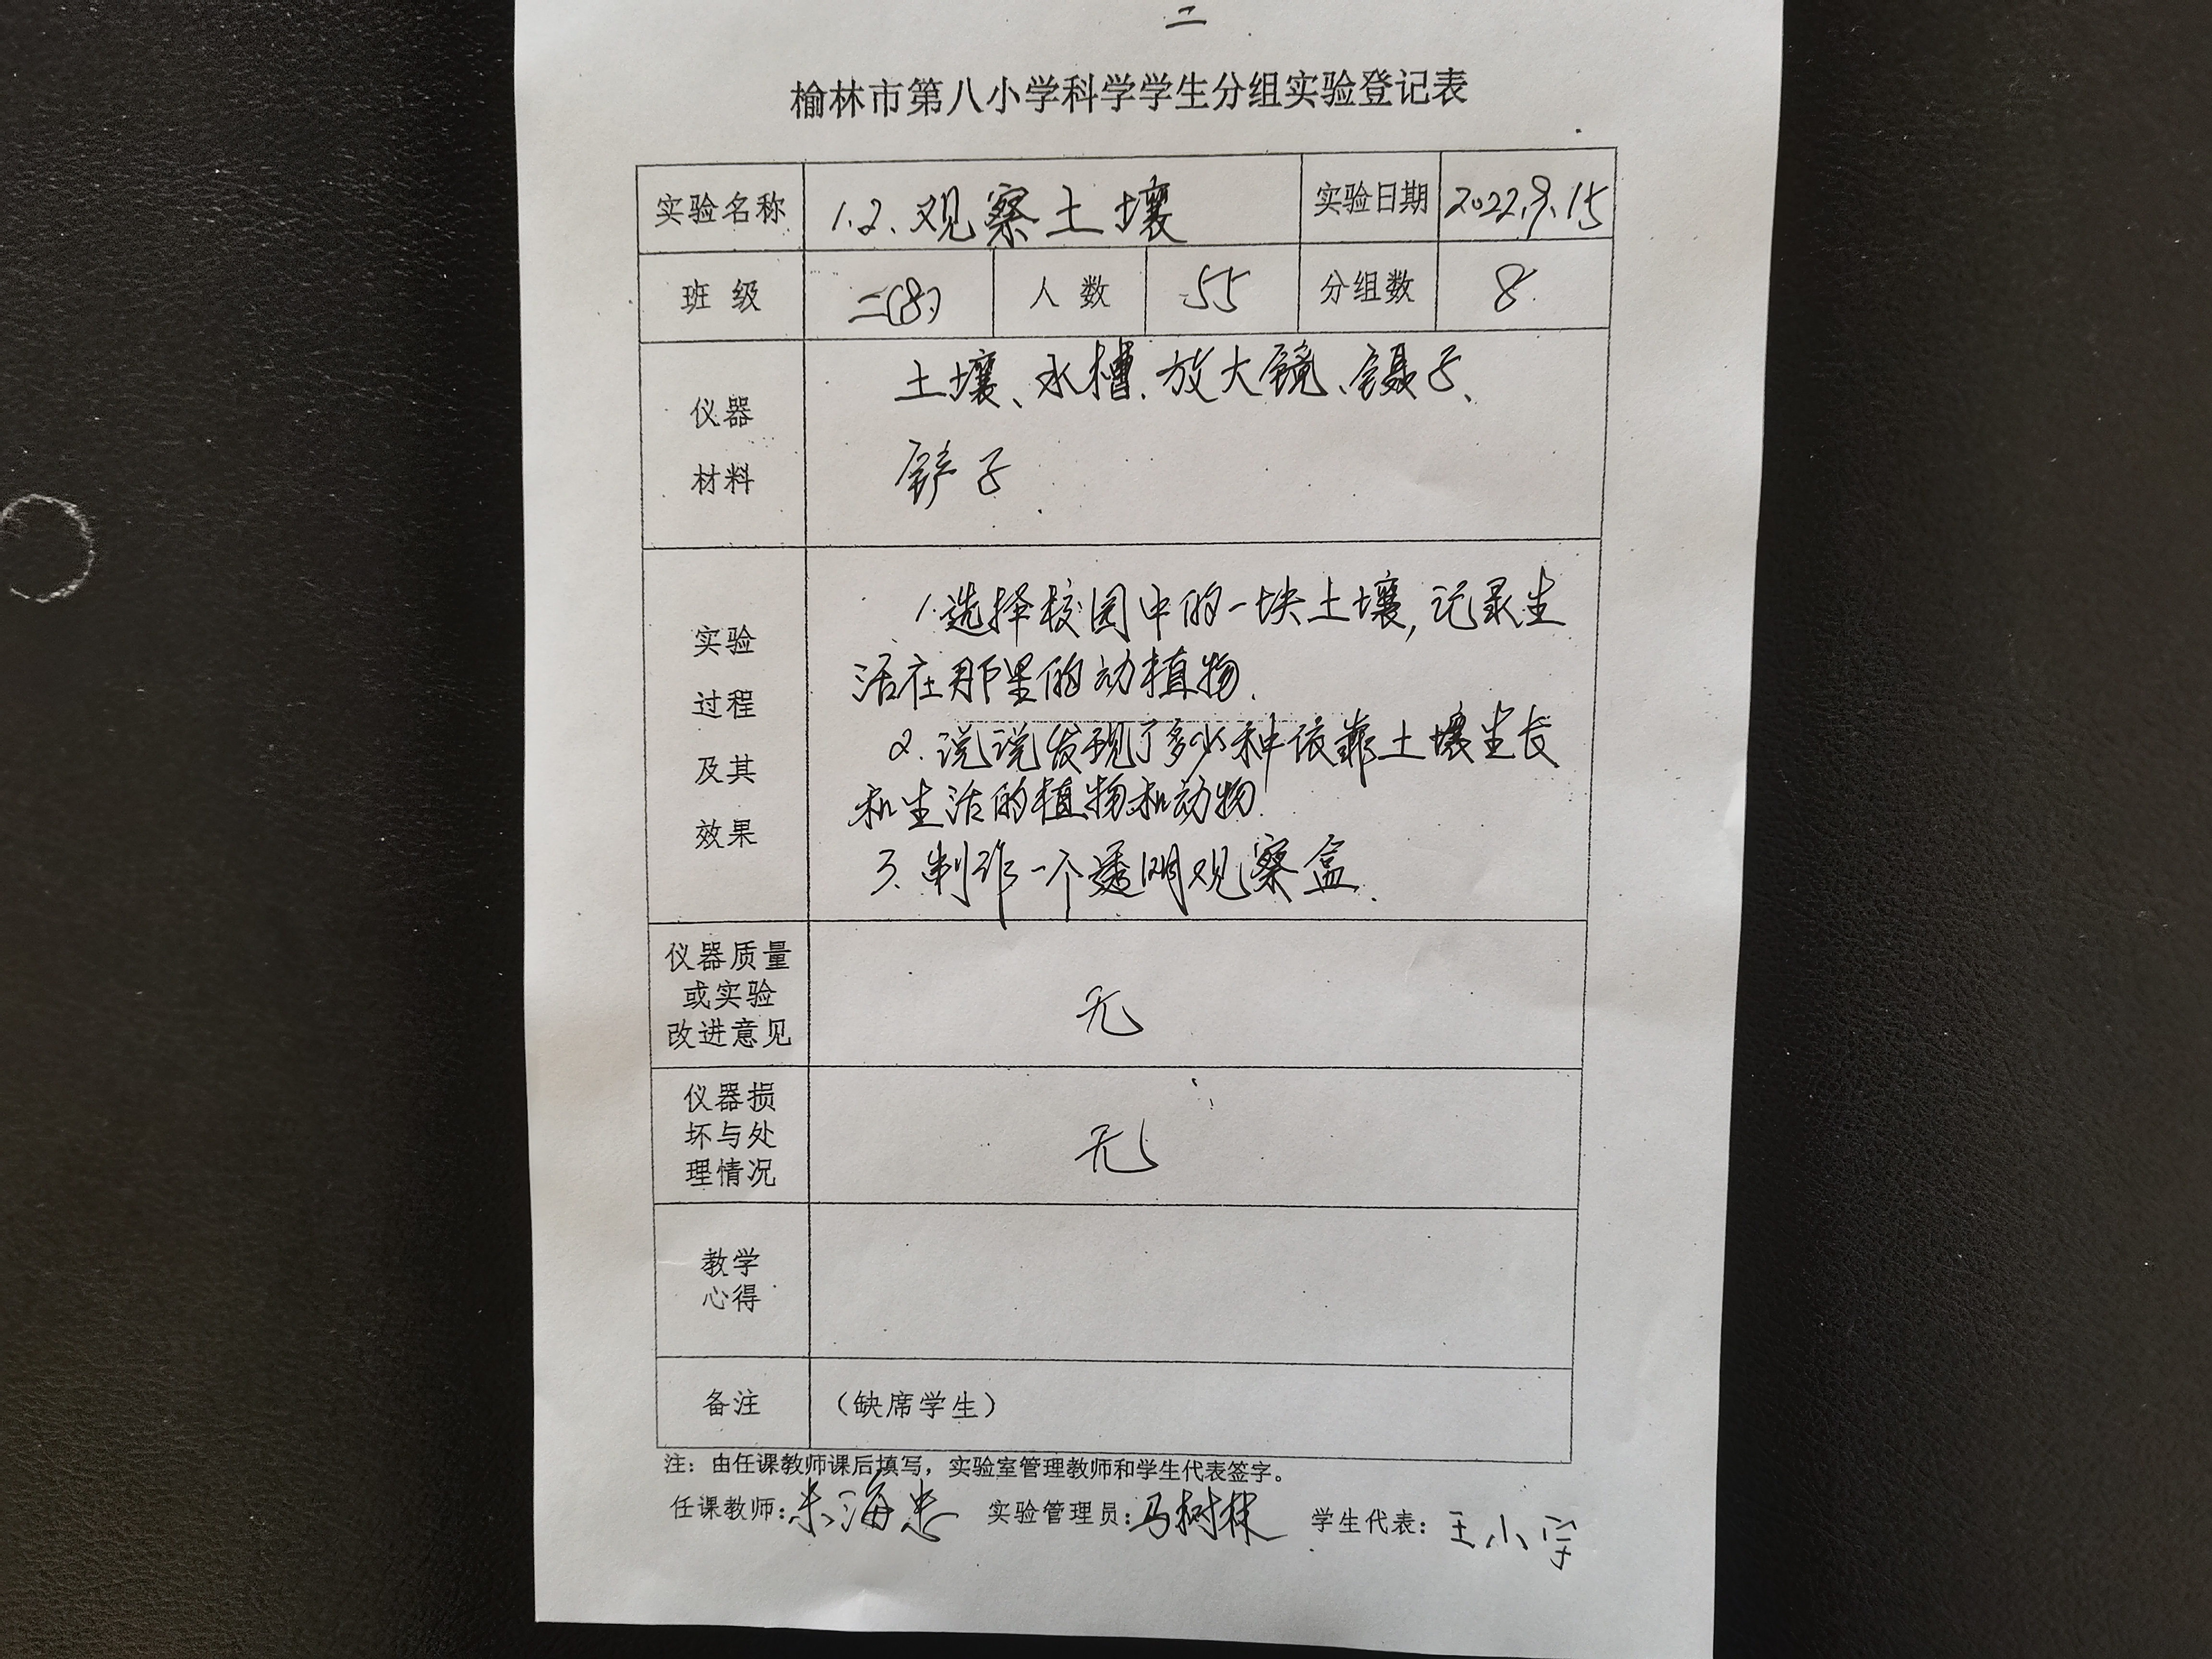 二
榆林市第八小学科学学生分组实验登记表
实验名称 1.2.观察土壤 实验日期 2022.9.15
班级 二(8) 人数 55 分组数 8
仪器
材料
土壤、水槽.放大镜、镊子、
铲子
实验
过程
及其
效果
1.选择校园中的一块土壤,记录生
活在那里的动植物.
2.说说发现了多少种依靠土壤生长
和生活的植物和动物.
3.制作一个透明观察盒.
仪器质量
或实验
改进意见
无
仪器损
坏与处
理情况
无
教学
心得
备注 （缺席学生）
注：由任课教师课后填写，实验室管理教师和学生代表签字。
任课教师：朱海忠 实验管理员：马树林 学生代表：王小宇